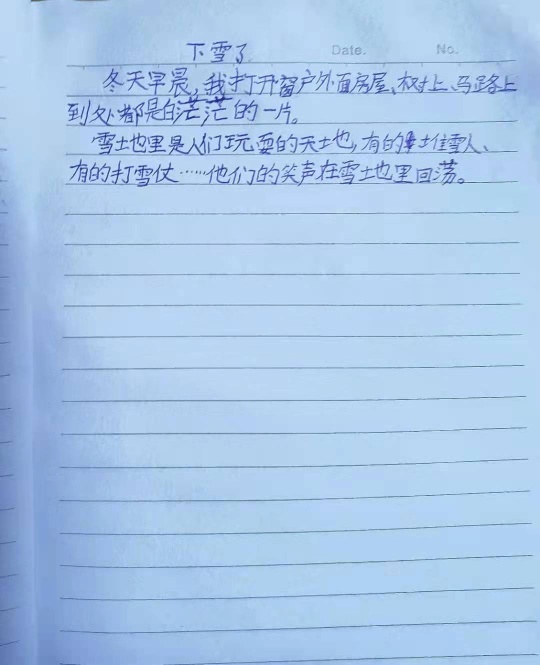 下雪了
Date.
No.
冬天早晨,我打开窗户外面房屋、树上、马路上
到处都是白茫茫的一片。
雪地里是人们玩耍的天地,有的堆雪人、
有的打雪仗……他们的笑声在雪地里回荡。